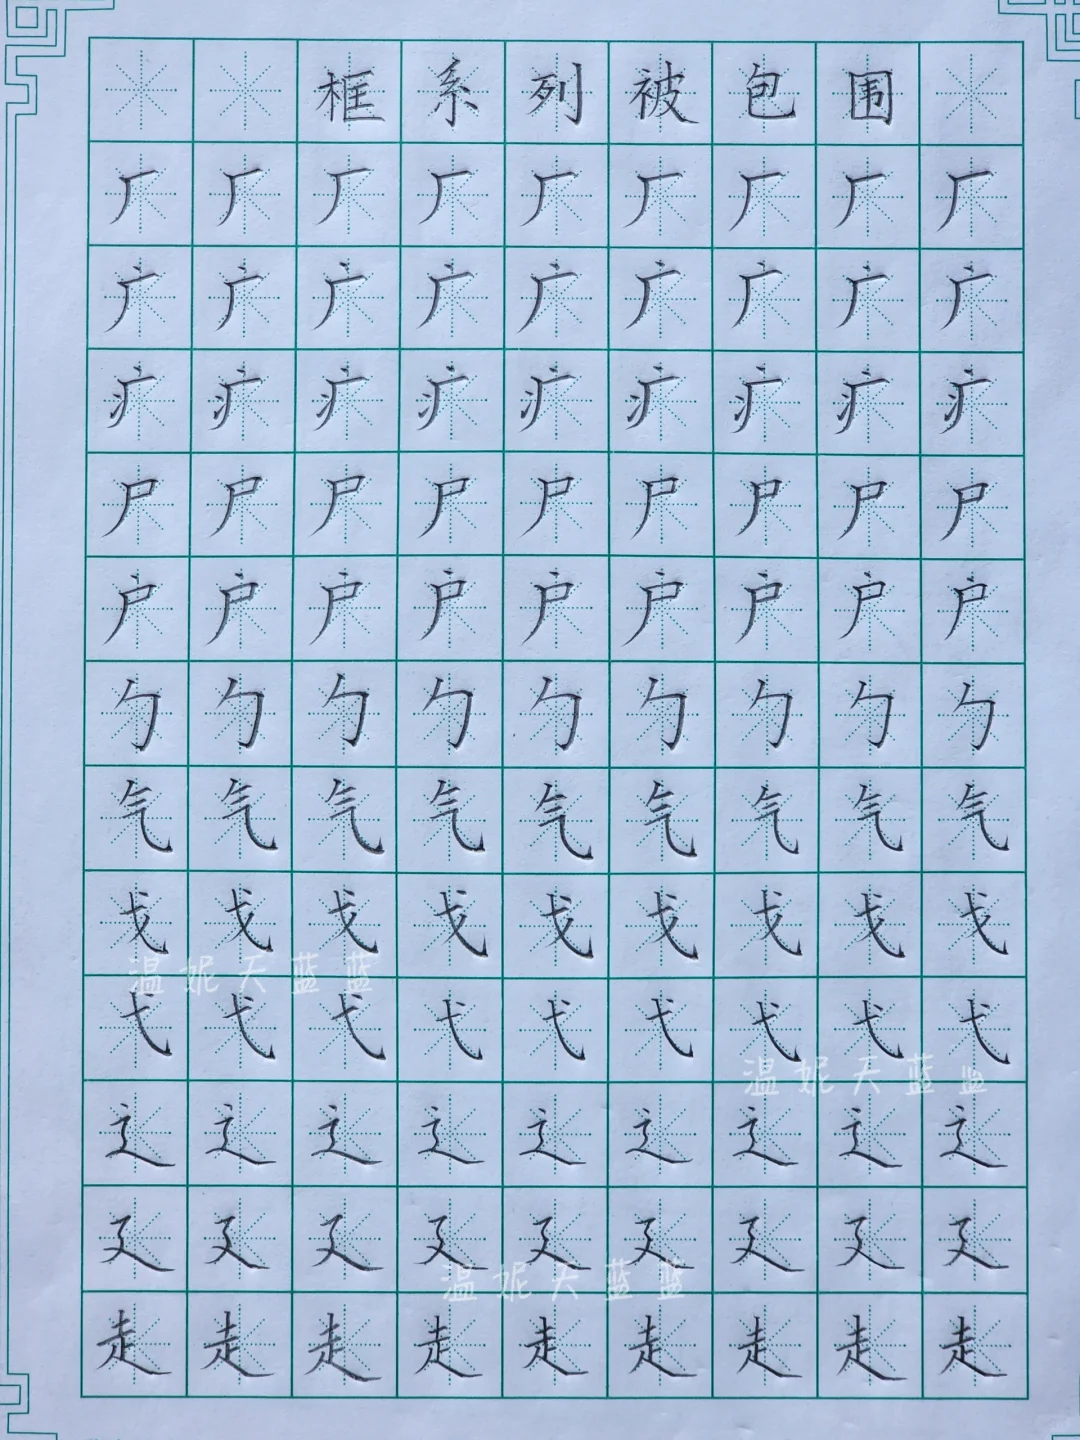 框系列被包围
厂厂厂厂厂厂厂厂厂
广广广广广广广广广
疒疒疒疒疒疒疒疒疒
尸尸尸尸尸尸尸尸尸
户户户户户户户户户
勹勹勹勹勹勹勹勹勹
气气气气气气气气气
戈戈戈戈戈戈戈戈戈
温妮天蓝蓝
弋弋弋弋弋弋弋弋弋
温妮天蓝蓝
辶辶辶辶辶辶辶辶辶
廴廴廴廴廴廴廴廴廴
温妮天蓝蓝
走走走走走走走走走